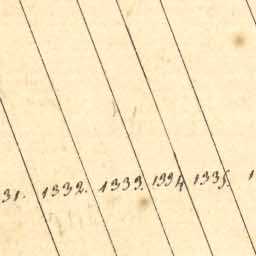 31. 1332. 1333. 1334 1335. 1